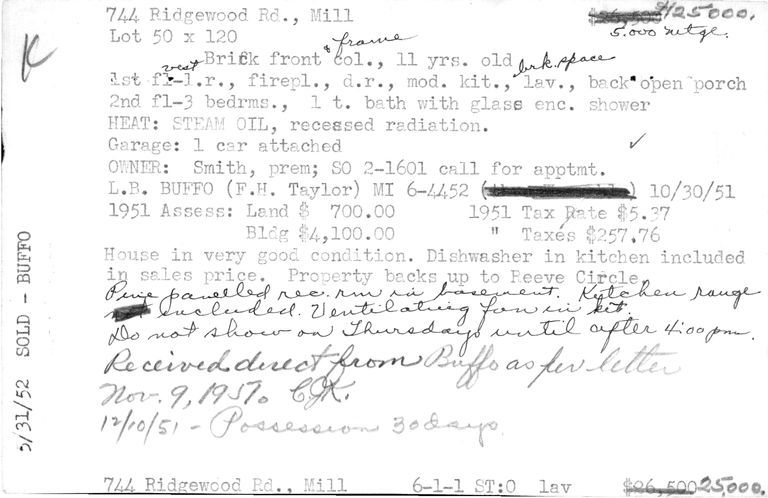 744 Ridgewood Rd., Mill $25,000.
Lot 50 x 120 5,000 mtge.
& frame
Brick front col., 11 yrs. old brk.space
1st fl-vest l.r., firepl., d.r., mod. kit., lav., back open porch
2nd fl-3 bedrms., 1 t. bath with glass enc. shower
HEAT: STEAM OIL, recessed radiation.
Garage: 1 car attached ✓
OWNER: Smith, prem; SO 2-1601 call for apptmt.
L.B. BUFFO (F.H. Taylor) MI 6-4452 ( ) 10/30/51
1951 Assess: Land $ 700.00 1951 Tax Rate $5.37
Bldg $4,100.00 " Taxes $257.76
House in very good condition. Dishwasher in kitchen included
in sales price. Property backs up to Reeve Circle.
Pine panelled rec. rm in basement. Kitchen range
included. Ventilating fan in kit.
Do not show on Thursdays until after 4:00 pm.
Received direct from Buffo as per letter
Nov. 9, 1951.
12/10/51 - Possession 30 days
744 Ridgewood Rd., Mill 6-1-1 ST:O lav $26,500 25,000.
5/31/52 SOLD - BUFFO
K